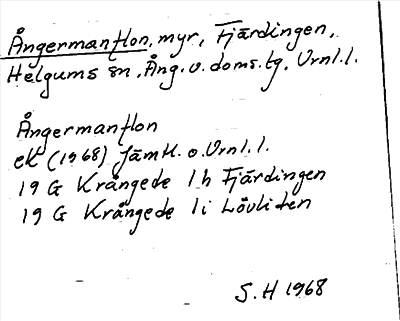 Ångermanflon, myr, Fjärdingen,
Helgums sn, Ång. v. doms. tg, Vrnl. l.
Ångermanflon
ek (1968) Jämtl. o. Vrnl. l.
19 G Krångede 1 h Fjärdingen
19 G Krångede 1 i Lövliden
S. H 1968